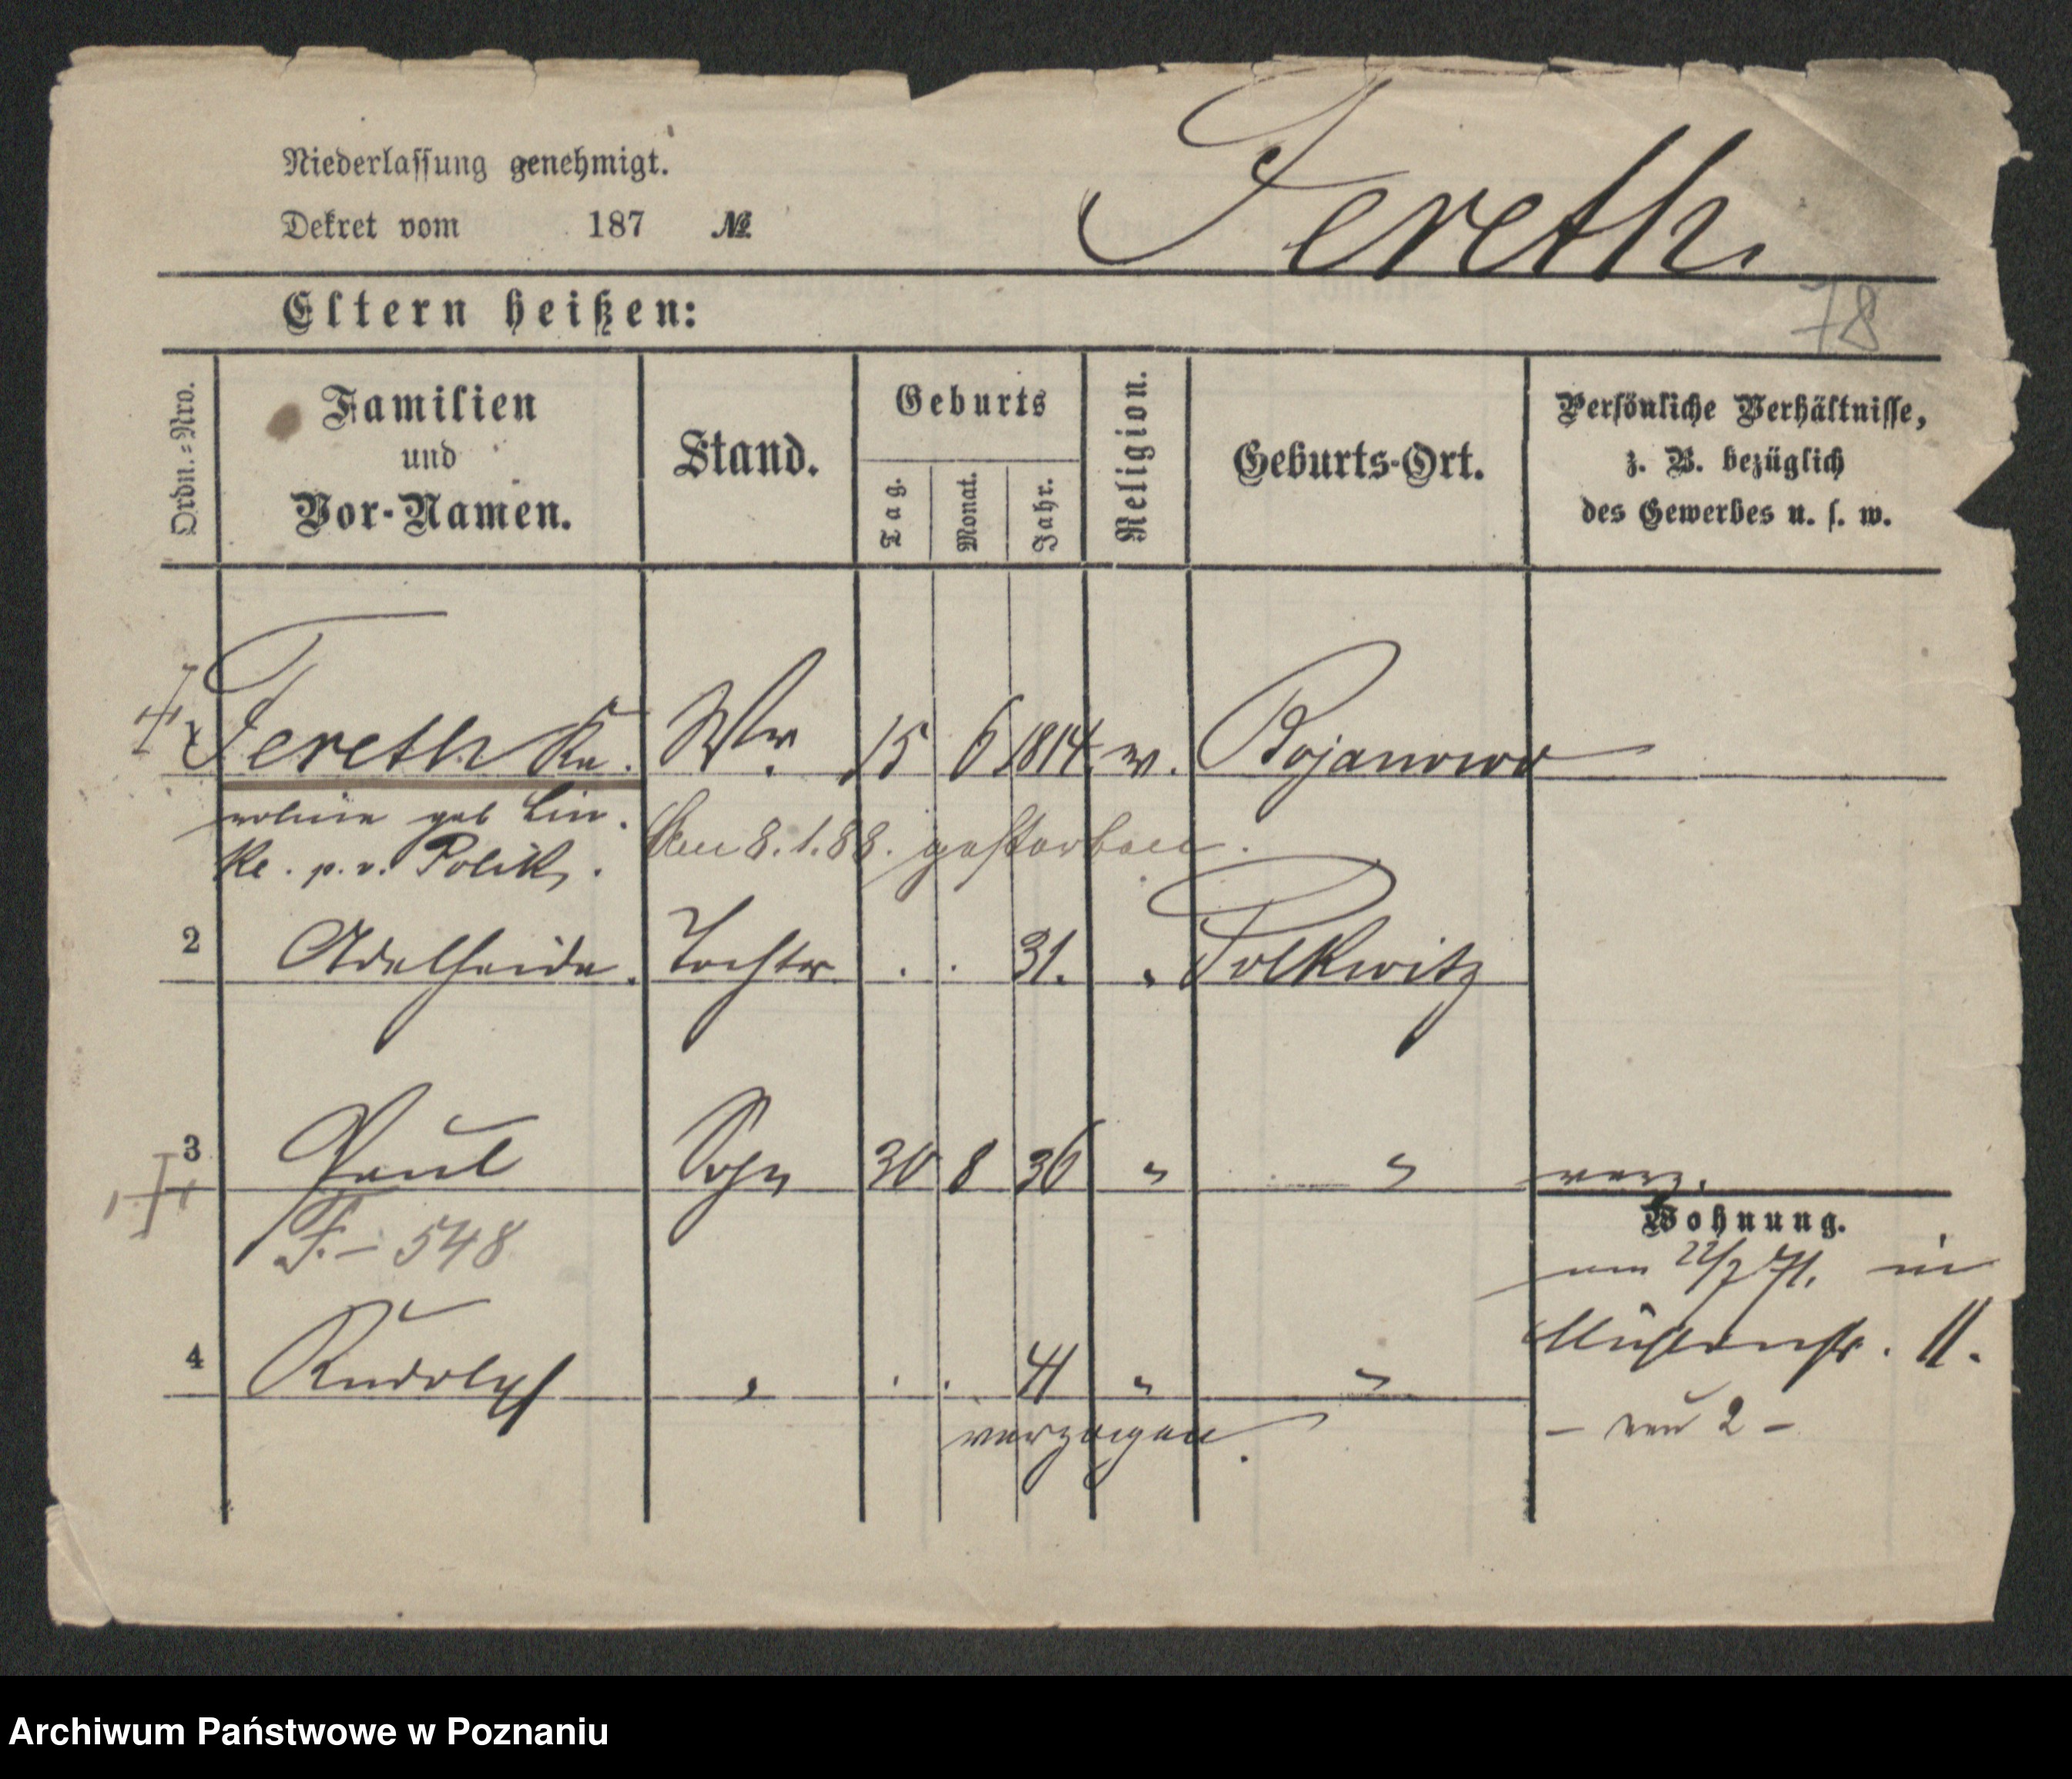 Niederlassung genehmigt.
Dekret vom 187 №
Fereth
Eltern heißen:
78
Ordn.-Nro.
Familien
und
Vor-Namen.
Stand.
Geburts
Tag.
Monat.
Jahr.
Religion.
Geburts-Ort.
Persönliche Verhältnisse,
z. B. bezüglich
des Gewerbes u. s. w.
Fereth Ka. Ww. 15 6 1814. ev. Bojanowo
roline geb Lin.
ke. p. v. Polik.
Am 8.1.88. gestorben.
2 Adelheide. Tochter . . 31. " Polkwitz
3 Paul Sohn 30 8 36 " " verz.
F. - 548
Wohnung.
am 22/7 71. in
Mühlenstr. 11.
4 Rudolph " . . 41 " "
- neu 2 -
verzogen.
Archiwum Państwowe w Poznaniu